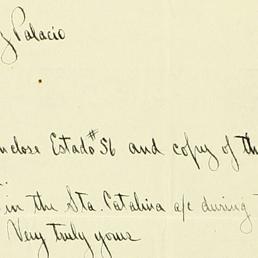 y Palacio
enclose Estado #56 and copy of th
in the Sta. Catalina a/c during
Very truly yours